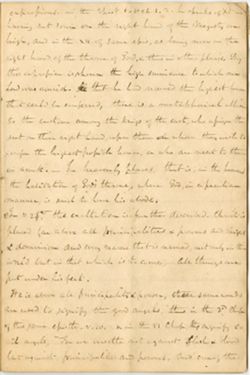 expressions. in the
heaven, sat down on the right hand of the Majesty on
high, and in the of same epis, as being now on the
right hand of the throne of God, as then in other places. By
this expression is shown the high eminence to which our
Lord was raised. that he had received the highest honor
that could be conferred, there is a metaphorical allu
to the custom among the kings of the east, who assign the
seat on their right hand, upon them on whom they wish to
confer the highest possible honor, or who are next to them
in rank. — In heavenly places, that is, in the heavens
the habitation of God's throne, where God, in a peculiar
manner is said to have his abode.
the exaltation is further described. Christ is
placed far above all principalities & powers and might
& dominion and every name that is named, not only in this
world but in that which is to come. All things are
put under his feet.
He is above all principalities & powers, these same words
are used to signify the good angels, thus in the 3rd Chap
of this same epistle, v. 10. & in the Chap they signify e-
vil angels, For we wrestle not against flesh & blood
but against principalities and powers, and among the